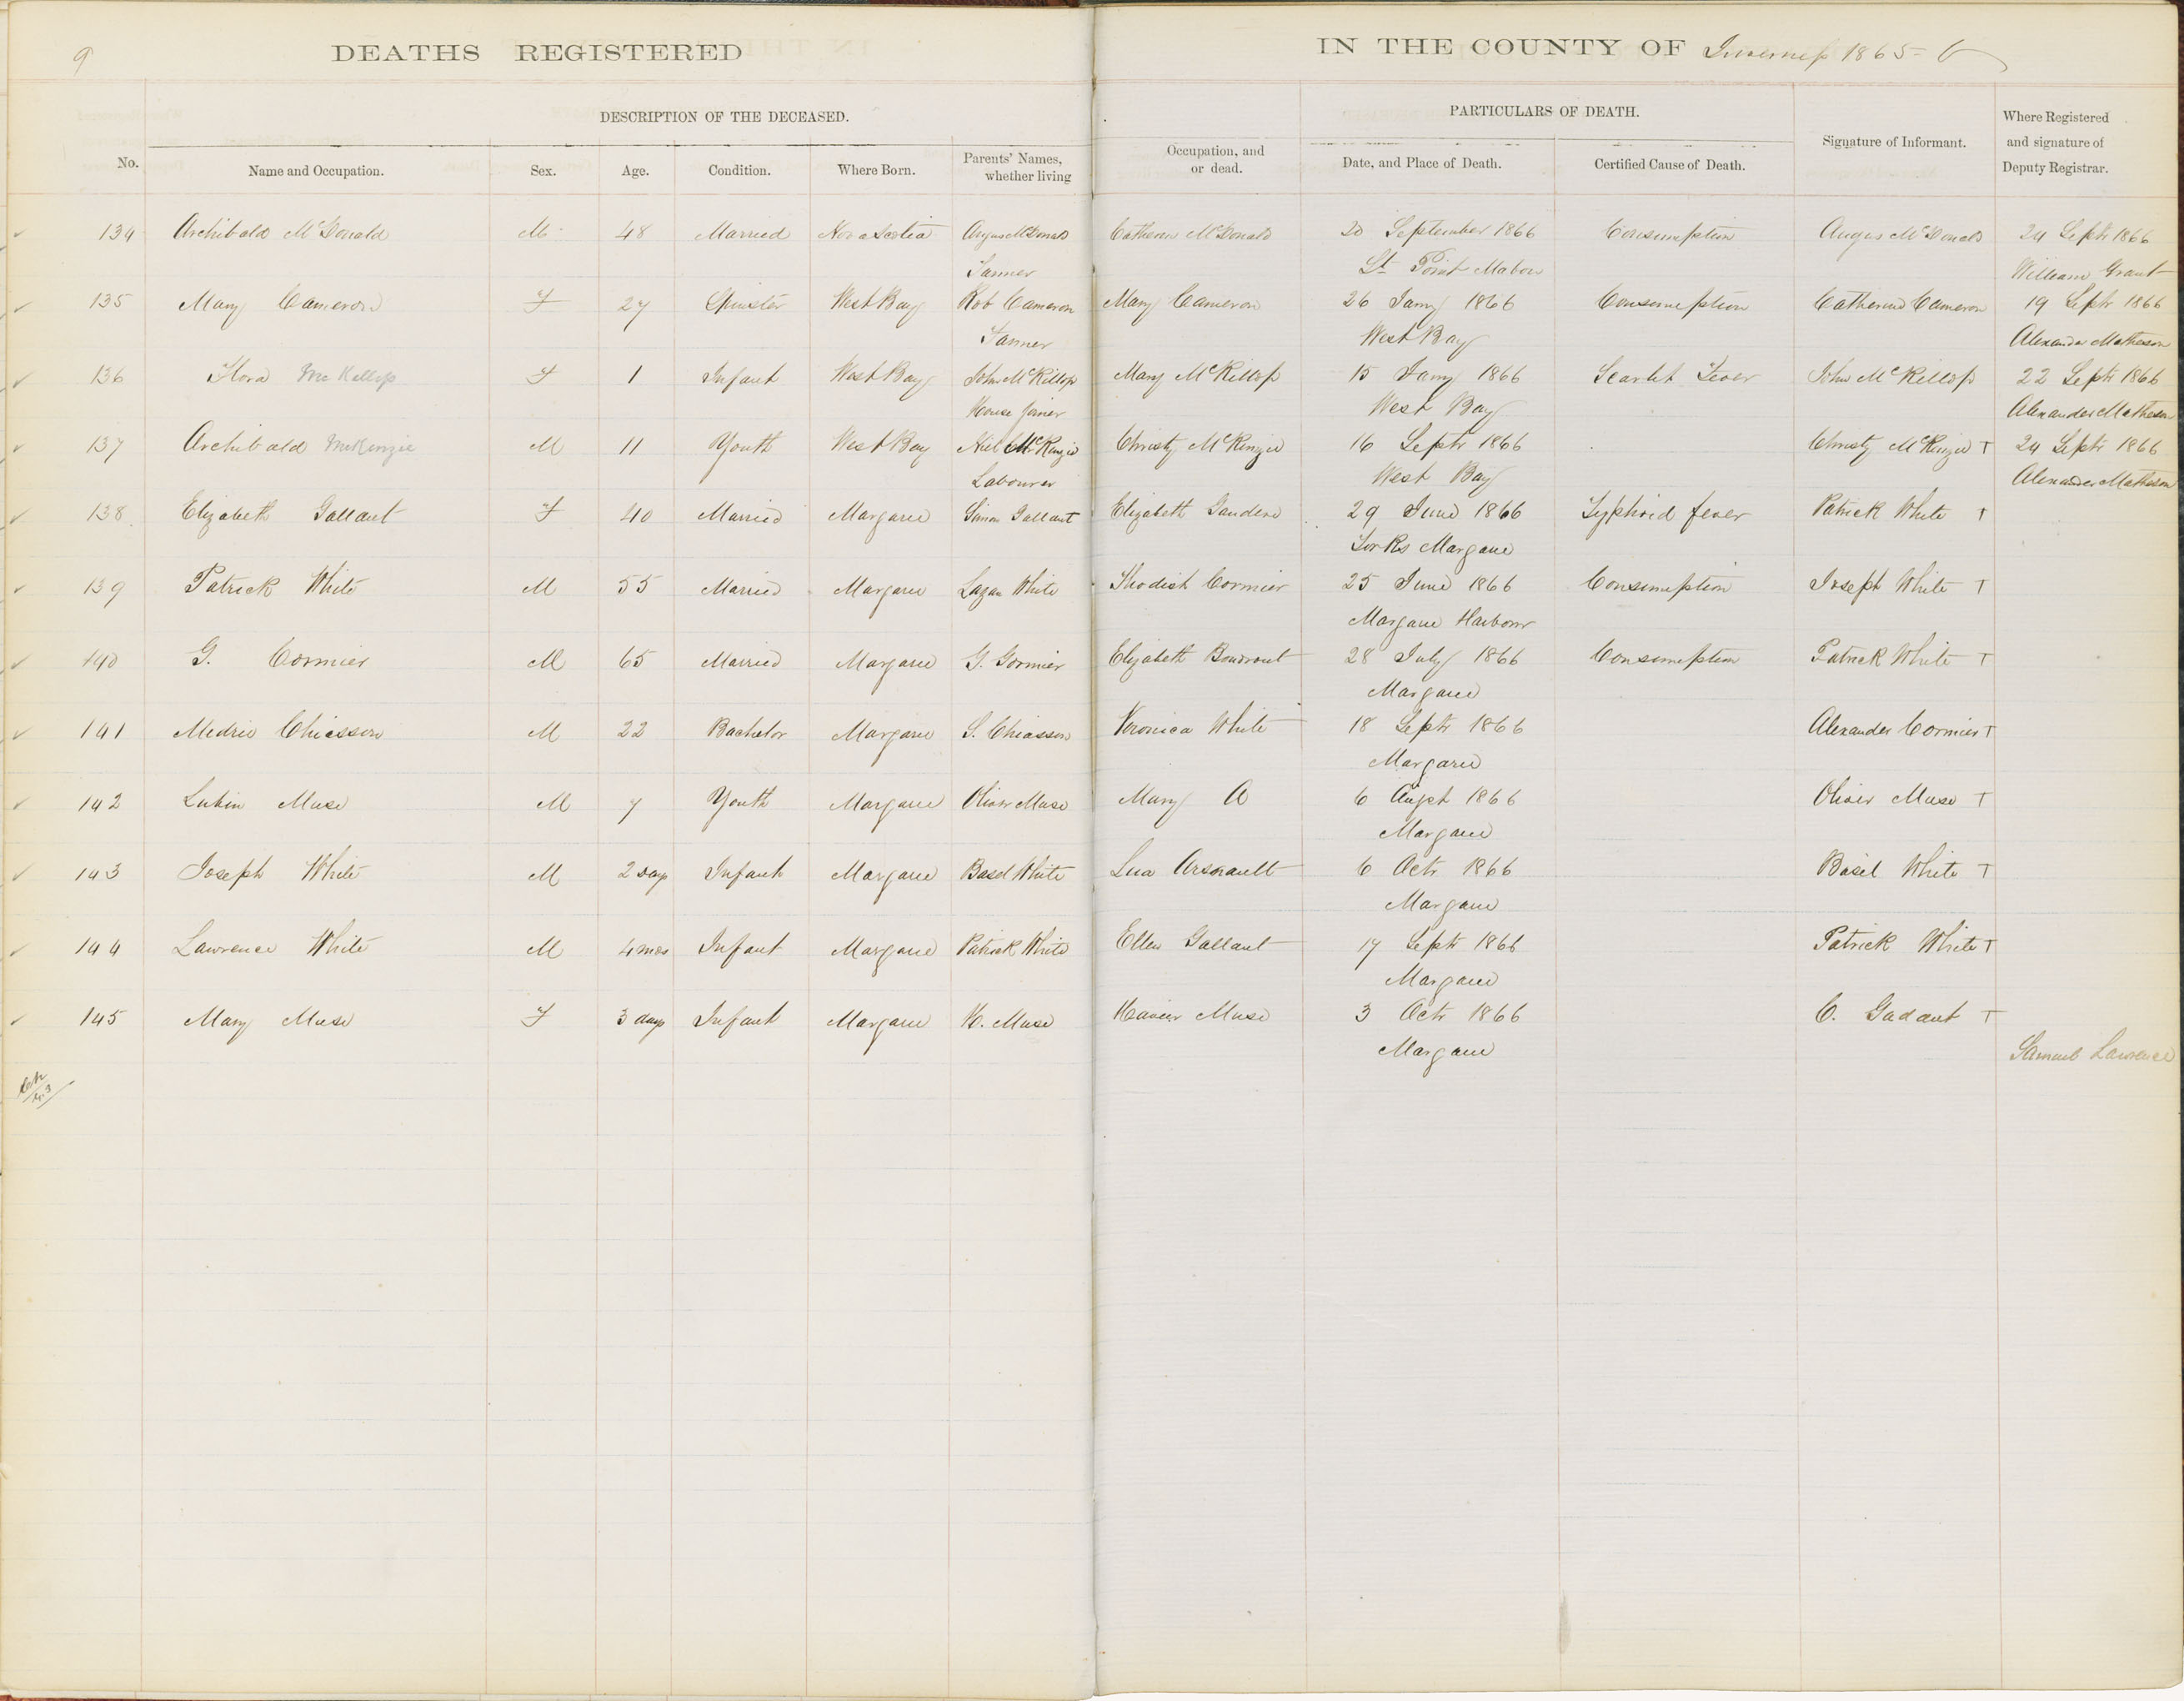 9
DEATHS REGISTERED IN THE COUNTY OF Inverness 1865-6
DESCRIPTION OF THE DECEASED. PARTICULARS OF DEATH.
No. Name and Occupation. Sex. Age. Condition. Where Born. Parents' Names, whether living Occupation, and or dead. Date, and Place of Death. Certified Cause of Death. Signature of Informant. Where Registered and signature of Deputy Registrar.
134 Archibald McDonald M 48 Married Nova Scotia Angus McDonald Catherine McDonald 20 September 1866 Consumption Angus McDonald 24 Septr 1866
Farmer Lt Point Mabou William Grant
135 Mary Cameron F 27 Spinster West Bay Rob Cameron Mary Cameron 26 Jany 1866 Consumption Catherine Cameron 19 Septr 1866
Farmer West Bay Alexander Matheson
136 Flora McKillop F 1 Infant West Bay John McKillop Mary McKillop 15 Jany 1866 Scarlet Fever John McKillop 22 Septr 1866
House Joiner West Bay Alexander Matheson
137 Archibald McKenzie M 11 Youth West Bay Neil McKenzie Christy McKenzie 16 Septr 1866 Christy McKenzie T 24 Septr 1866
Labourer West Bay Alexander Matheson
138 Elizabeth Gallant F 40 Married Margaree Simon Gallant Elizabeth 29 June 1866 Typhoid fever Patrick White T
Forks Margaree
139 Patrick White M 55 Married Margaree White Cormier 25 June 1866 Consumption Joseph White T
Margaree Harbour
140 G. Cormier M 65 Married Margaree G. Cormier Elizabeth Boudrout 28 July 1866 Consumption Patrick White T
Margaree
141 Medric Chiasson M 22 Bachelor Margaree S. Chiasson Veronica White 18 Septr 1866 Alexander Cormier T
Margaree
142 Lubin Muse M 7 Youth Margaree Oliver Muse Mary A 6 Augst 1866 Oliver Muse T
Margaree
143 Joseph White M 2 days Infant Margaree Basel White Arsenault 6 Octr 1866 Basil White T
Margaree
144 Lawrence White M 4 mos Infant Margaree Patrick White Ellen Gallant 17 Septr 1866 Patrick White T
Margaree
145 Mary Muse F 3 days Infant Margaree H. Muse Muse 3 Octr 1866 C. T
Margaree Samuel Lawrence